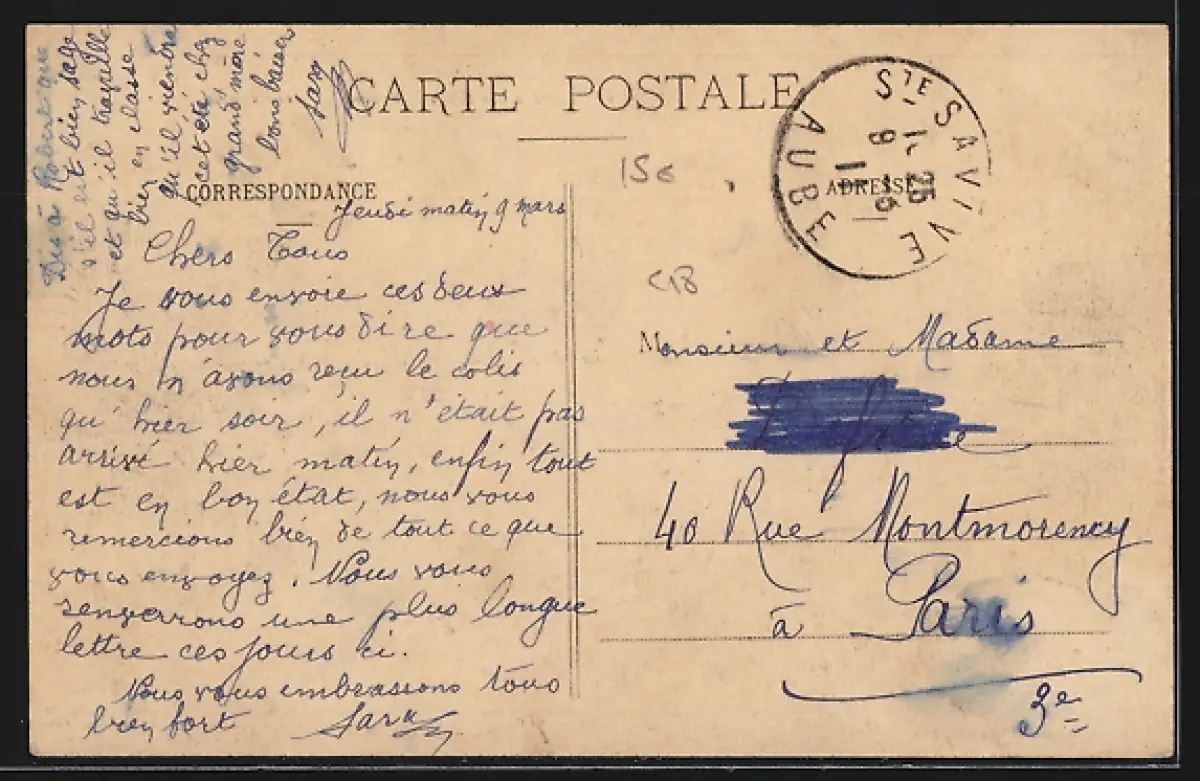 Dis à Robert que
s'il est bien sage
et qu'il travaille
bien en classe
qu'il viendra
cet été chez
grand'mère
bons baisers
CARTE POSTALE
STE SAVINE
AUBE
CORRESPONDANCE
ADRESSE
15c
C18
Jeudi matin 9 mars
Chers Tous
Je vous envoie ces deux
mots pour vous dire que
nous n'avons reçu le colis
qu'hier soir, il n'était pas
arrivé hier matin, enfin tout
est en bon état, nous vous
remercions bien de tout ce que
vous envoyez. Nous vous
renverrons une plus longue
lettre ces jours ci.
Nous vous embrassons tous
bien fort
Monsieur et Madame
40 Rue Montmorency
à Paris
3e